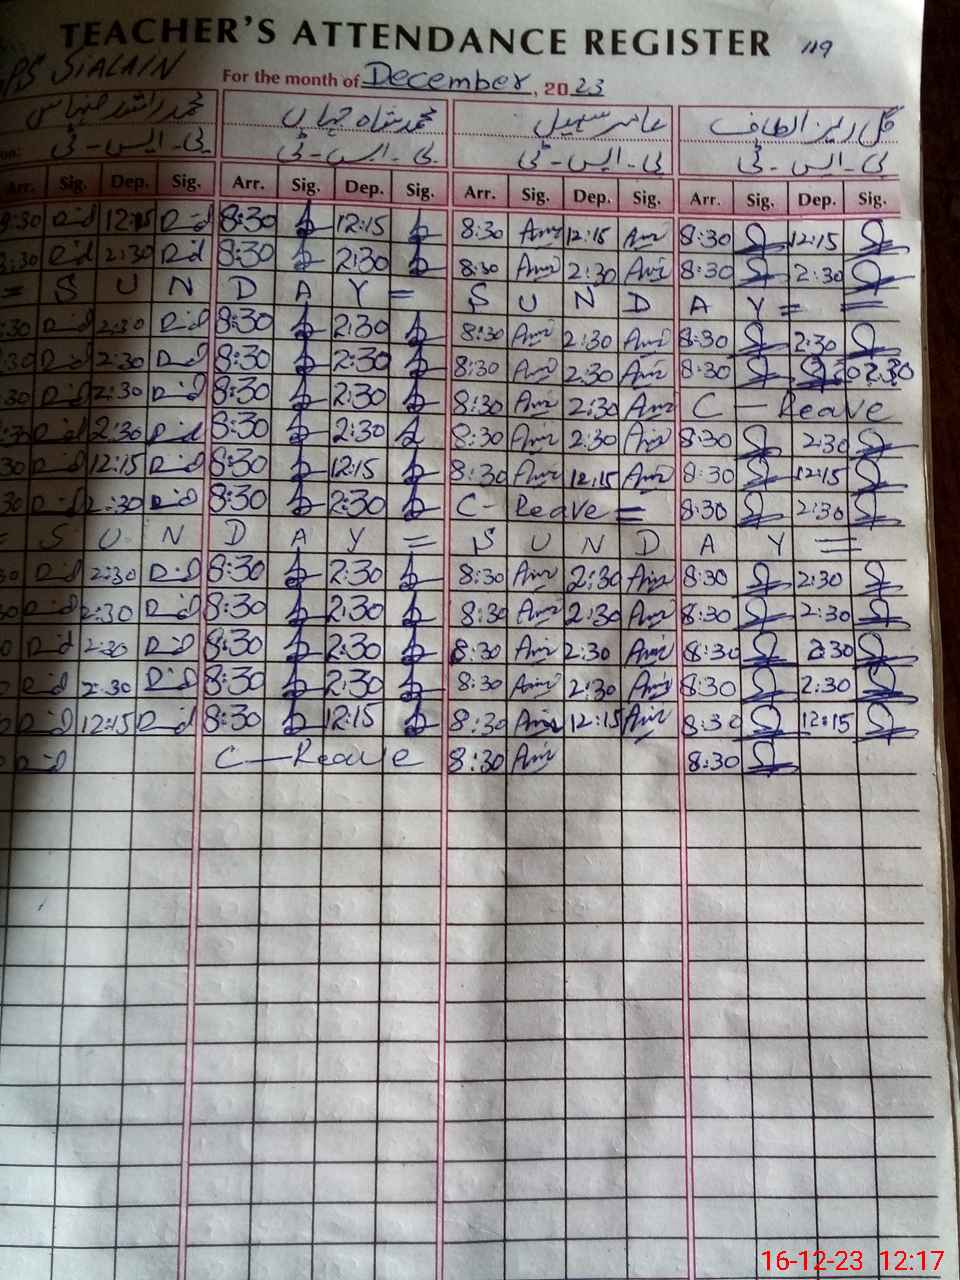 TEACHER'S ATTENDANCE REGISTER 119
PS SIALAIN For the month of December, 2023
محمد راشد عباس محمد شاہ جہاں عامر سہیل گل ریز الطاف
پی-ایس-ٹی پی-ایس-ٹی پی-ایس-ٹی پی-ایس-ٹی
Arr. Sig. Dep. Sig. Arr. Sig. Dep. Sig. Arr. Sig. Dep. Sig. Arr. Sig. Dep. Sig.
8:30 12:15 8:30 12:15 8:30 12:15 8:30 12:15
8:30 2:30 8:30 2:30 8:30 2:30 8:30 2:30
= S U N D A Y = S U N D A Y = =
:30 2:30 8:30 2:30 8:30 2:30 8:30 2:30
:30 2:30 8:30 2:30 8:30 2:30 8:30 2:30
:30 2:30 8:30 2:30 8:30 2:30 C - Leave
:30 2:30 8:30 2:30 8:30 2:30 8:30 2:30
:30 12:15 8:30 12:15 8:30 12:15 8:30 12:15
:30 2:30 8:30 2:30 C - Leave = 8:30 2:30
= S U N D A Y = S U N D A Y =
30 2:30 8:30 2:30 8:30 2:30 8:30 2:30
30 2:30 8:30 2:30 8:30 2:30 8:30 2:30
0 2:30 8:30 2:30 8:30 2:30 8:30 2:30
0 2:30 8:30 2:30 8:30 2:30 8:30 2:30
0 12:15 8:30 12:15 8:30 12:15 8:30 12:15
0 C - Leave 8:30 8:30
16-12-23 12:17